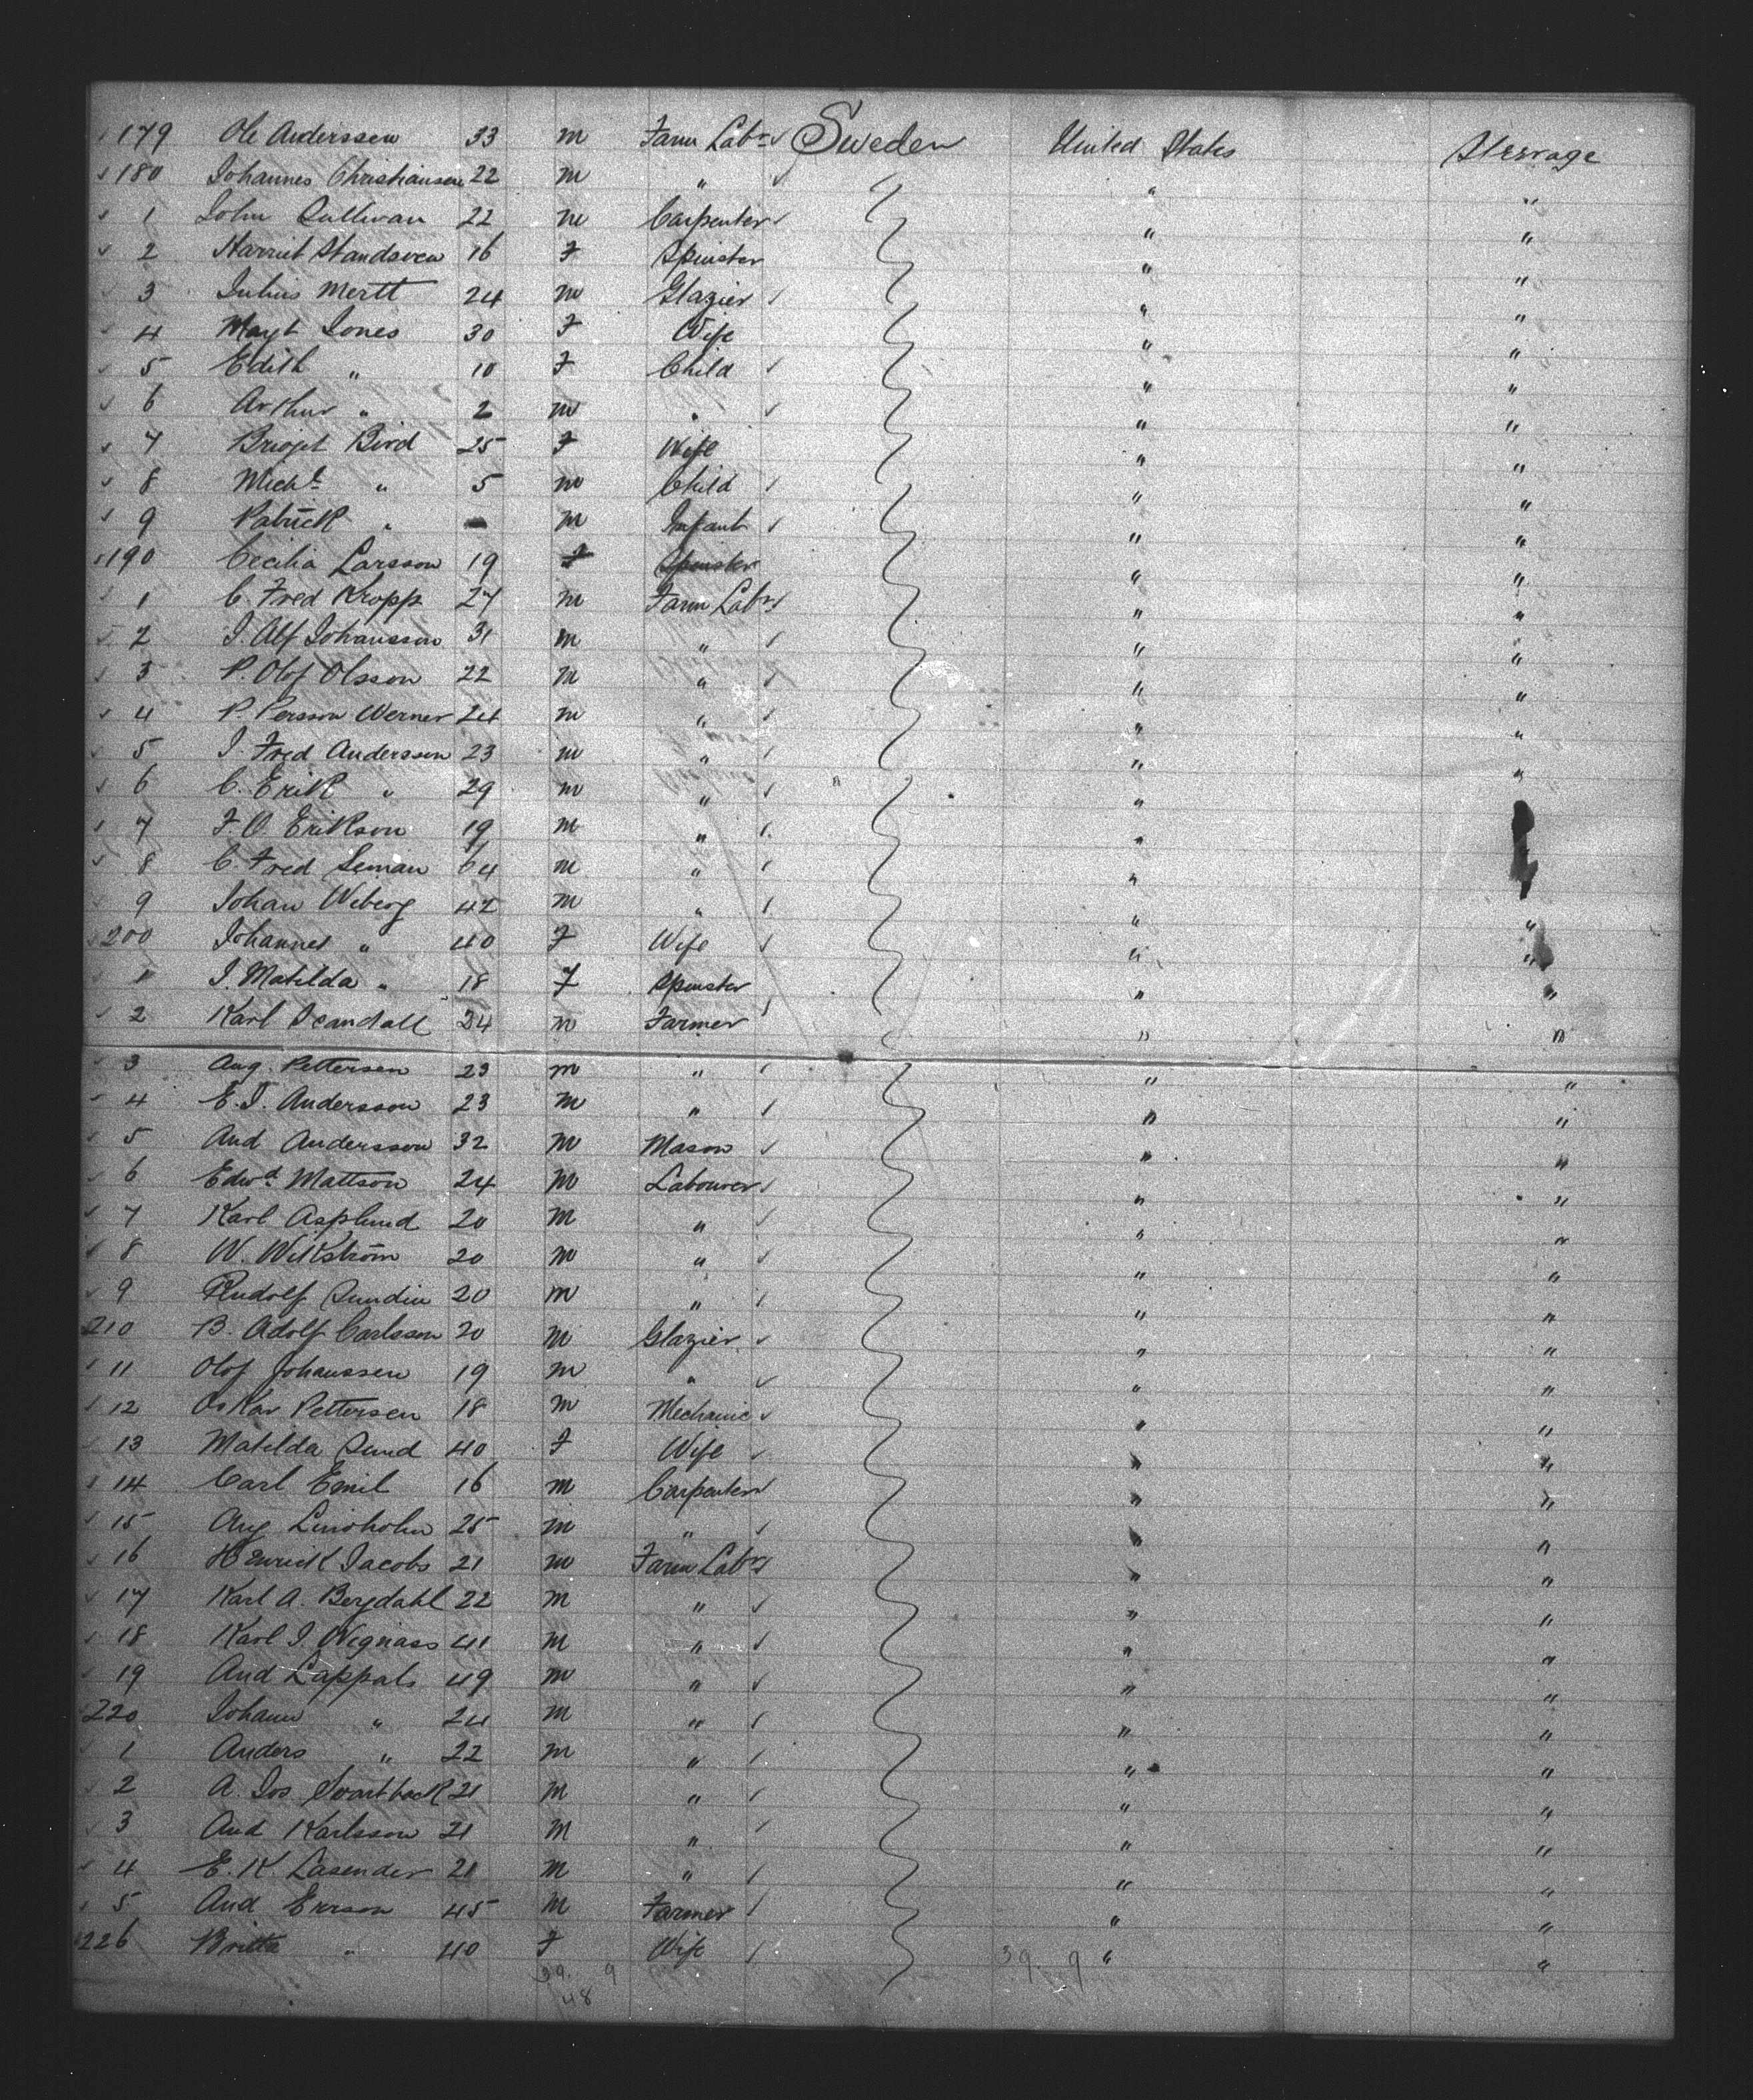 179 Ole Anderssen 33 m Farm Labr Sweden United States Steerage
180 Johannes Christiansen 22 m " " "
1 John Sullivan 22 m Carpenter " "
2 Harriet Standsven 16 F Spinster " "
3 Julius Mertt 24 m Glazier " "
4 Mayt Jones 30 F Wife " "
5 Edith " 10 F Child " "
6 Arthur " 2 m " " "
7 Bridget Bird 25 F Wife " "
8 Michl " 5 m Child " "
9 Patrick " - m Infant " "
190 Cecilia Larsson 19 F Spinster " "
1 C. Fred Kropp 27 m Farm Labr " "
2 J. Alf Johansson 31 m " " "
3 P. Olof Olsson 22 m " " "
4 P. Persson Werner 24 m " " "
5 J. Fred Anderssen 23 m " " "
6 C. Erik " 29 m " " " "
7 F. O. Erikson 19 m " "
8 C. Fred Leman 64 m " "
9 Johan Weberg 42 m " " "
200 Johannes " 40 F Wife " "
1 J. Matilda " 18 F Spinster " "
2 Karl Scandall 24 m Farmer " "
3 Aug. Pettersen 23 m " " "
4 E. J. Andersson 23 m " " "
5 And Andersson 32 m Mason " "
6 Edwd Mattson 24 m Labourer " "
7 Karl Asplund 20 m " " "
8 W. Wikström 20 m " " "
9 Rudolf Sundin 20 m " " "
210 B. Adolf Carlsson 20 m Glazier " "
11 Olof Johanssen 19 m " " "
12 Oskar Pettersen 18 m Mechanic " "
13 Matilda Sund 40 F Wife " "
14 Carl Emil 16 m Carpenter " "
15 Aug Lindholm 25 m " " "
16 Henrick Jacobs 21 m Farm Labr " "
17 Karl A. Bergdahl 22 m " " "
18 Karl J. 41 m " " "
19 And Lappals 49 m " " "
220 Johann " 24 m " " "
1 Anders " 22 m " " "
2 A. Jos Svartback 21 m " " "
3 And Karlsson 21 m " " "
4 E. K. Lasender 21 m " " "
5 And Ersson 45 m Farmer " "
226 Britta " 40 F Wife " "
39. 9 39. 9
48